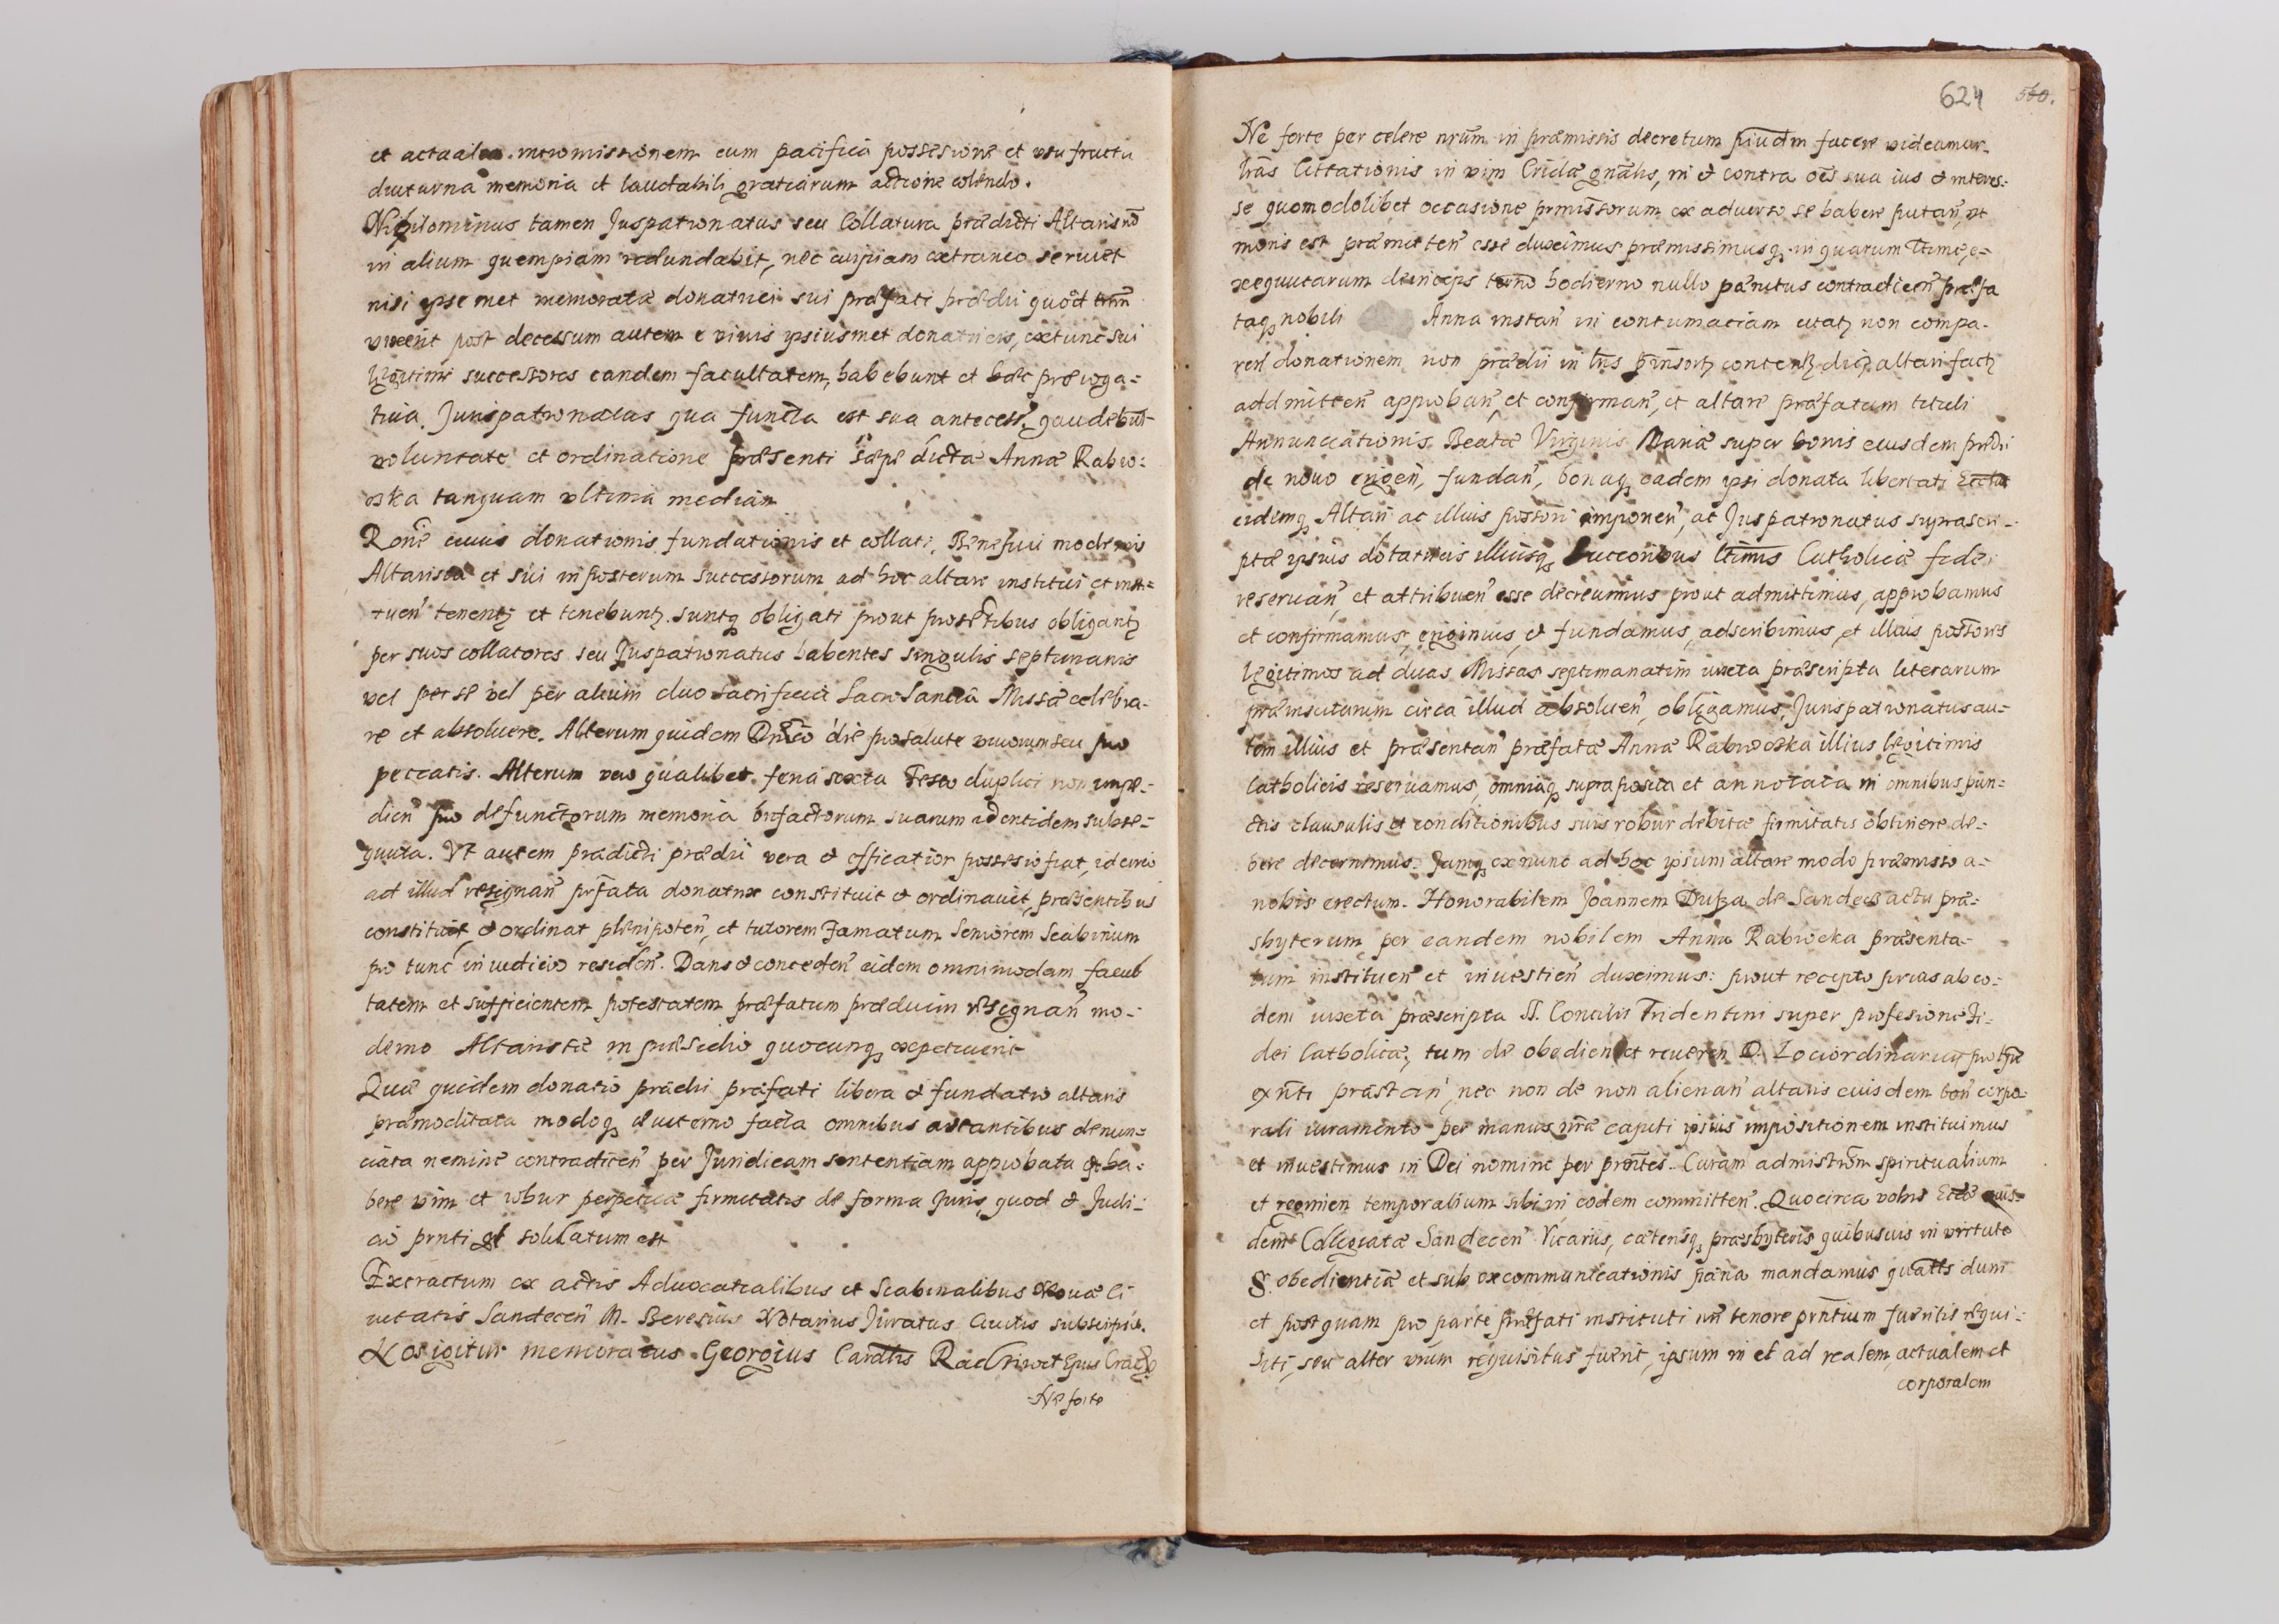 et actualem intromissionem cum pacifica possesione et usufructu
diuturna memoria et laudabili gratiarum actione colendo.
Nihilominus tamen Juspatronatus seu Collatura prædicti Altaris nō
in alium quempiam redundabit, nec cuipiam extraneo seruiet
nisi ipse met memorata donatrici sui præfati prædii quod
vixerit post decessum autem e viuis ipsiusmet donatricis, extunc sui
legitimi successores eandem facultatem, habebunt et hac præroga-
tiua. Jurispatronatus qua functa est sua antecess, gaudebūt
voluntate et ordinatione præsenti sæpe dicta Annæ Rabro-
oska tanquam ultima median
Roñe cuius donationis fundationis et collati, Beneficii modernis
Altarista et sui inposterum successorum ad hoc altare institui et insti-
tuen tenentꝫ et tenebuntꝫ suntqꝫ obligati prout prontibus obligantꝫ
per suos collatores seu Juspatronatus habentes singulis septimanis
vel per se vel per alium duo sacrificia Sacrosancta Missæ celebra-
re et absoluere. Alterum quidem Dnico die pro salute viuorum seu pro
peccatis. Alterum vero qualibet feria sexta Festo duplici non impe-
dien pro defunctorum memoria bnfactorum suarum identidem subse-
quuta. Ut autem prædicti prædii vera & efficatior possesio fiat, idcirco
ad illud resignan præfata donatrix constituit & ordinauit, præsentibus
constituit, & ordinat plenipoten, et tutorem Famatum Seniorem Scabinum
pro tunc in iudicio residen. Dans & conceden eidem omnimodam facul
tatem et sufficientem potestatem præfatum prædium resignan mo-
derno Altaristæ in præsidio quocunqꝫ expetiuerit
Quæ quidem donatio prædii præfati libera & fundatio altaris
præmoditata modoqꝫ æuiterno facta omnibus astantibus denun-
ciata nemine contradicen per Juridicam sententiam approbata et ha-
bere vim et robur perpetuæ firmitatis de forma Juris, quod & Judi-
cio prnti et solidatum est
Extractum ex actis Aduocatialibus et Scabinalibus Nouæ Ci
uitatis Sandecen M. Beresius Notarius Juratus Ciuitis subscripsit.
Nos igitur memoratus Georgius Cardlis Radziwil Epus Cracꝫ
Ne forte
624 560.
Ne forte per celere nrum in præmissis decretum piudm facere videamur
lras Cittationis in vim Cridæ gnalis, in & contra oēs sua ius & interes-
se quomodolibet occasione prmissorum ex aduerso se habere putan, ut
moris est præmitten esse duximus præmissimusqꝫ in quarum ltime e-
xequutarum deinceps hodierno nullo pænitus contradicen præfa
taqꝫ nobili Anna instan in contumaciam citatꝫ non compa-
ren donationem non prædii in lris contentꝫ dictꝫ altari factꝫ
admitten approban, et confirman, et altare præfatum tituli
Annunciationis Beatæ Virginis Mariæ super bonis eiusdem prædii
de nouo erigen, fundan, bonaqꝫ eadem ipsi donata libertati Ecclia
eidemqꝫ Altari ac illius possori imponen, ac Juspatronatus suprascri-
ptæ ipsius dotatricis illiusqꝫ succoribus ltimis Catholicæ fidei
reseruan, et attribuen esse decreuimus prout admittimus, approbamus
et confirmamus, erigimus, & fundamus, adscribimus, et illius possoris
legitimos ad duas Missas septimanatim iuxta præscripta literarum
præinsertarum circa illud absoluen, obligamus, Jurispatronatus au-
tem illius et præsentan præfatæ Annæ Rabrocska illius legitimis
Catholicis reseruamus, omniaqꝫ supraposita et annotata in omnibus pun-
ctis clausulis et conditionibus suis robur debitæ firmitatis obtinere de-
bere decernimus. Jamqꝫ exnunc ad hoc ipsum altare modo præmisso a-
nobis erectum. Honorabilem Joannem Duʒa de Sandecz actu præ-
sbyterum per eandem nobilem Anna Rabrocka præsenta-
tum instituen et inuestien duximus: prout recepto prius ab eo-
dem iuxta præscripta SS. Concilii Tridentini super profesione Fi-
dei Catholicæ, tum de obedien et reueren D. Loci ordinario pro tpre
exnti præstan, nec non de non alienan altaris eiusdem bon corpo-
rali iuramento per manus nræ capiti ipsius impositionem instituimus
et inuestimus in Dei nomine per prntes. Curam admistrōm spiritualium
et regimien temporalium sibi in eodem committen. Quocirca vobis Ecclæ eius-
dem Collegiatæ Sandecen Vicariis, cæterisqꝫ præsbyteris quibusuis in virtute
S. obedientiæ et sub excommunicationis pæna mandamus quatts dum
et postquam pro parte præfati instituti nri tenore prntium fueritis requi-
siti, seu alter vrum requisitus fuerit, ipsum in et ad realem, actualem et
corporalem